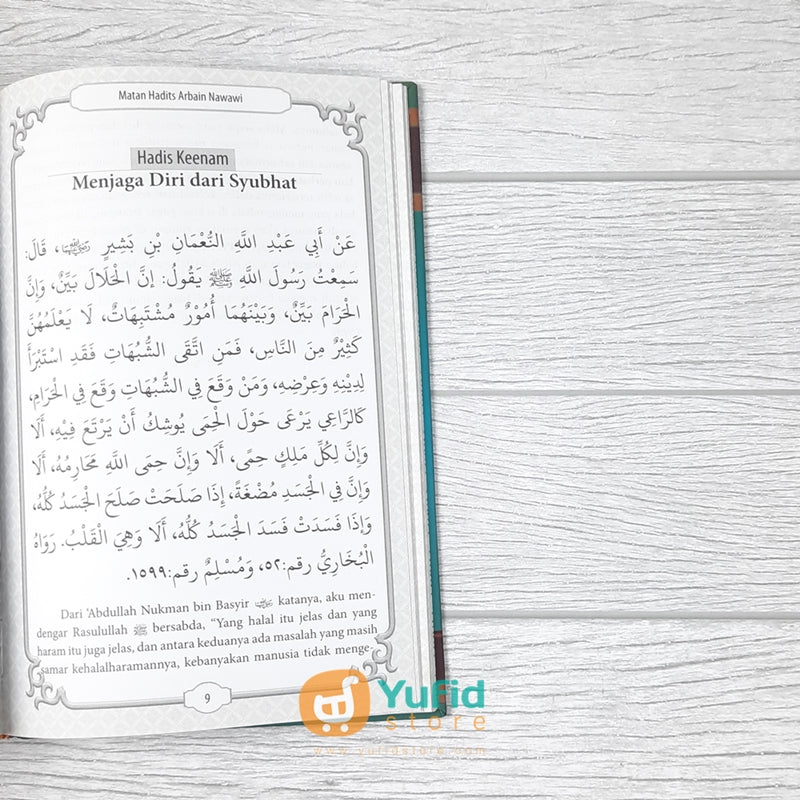 Matan Hadits Arbain Nawawi
Hadis Keenam
Menjaga Diri dari Syubhat
عَنْ أَبِي عَبْدِ اللَّهِ النُّعْمَانِ بْنِ بَشِيرٍ رضي الله عنهما، قَالَ:
سَمِعْتُ رَسُولَ اللَّهِ ﷺ يَقُولُ: إِنَّ الْحَلَالَ بَيِّنٌ، وَإِنَّ
الْحَرَامَ بَيِّنٌ، وَبَيْنَهُمَا أُمُوْرٌ مُشْتَبِهَاتٌ، لَا يَعْلَمُهُنَّ
كَثِيْرٌ مِنَ النَّاسِ، فَمَنِ اتَّقَى الشُّبُهَاتِ فَقَدِ اسْتَبْرَأَ
لِدِيْنِهِ وَعِرْضِهِ، وَمَنْ وَقَعَ فِي الشُّبُهَاتِ وَقَعَ فِي الْحَرَامِ،
كَالرَّاعِي يَرْعَى حَوْلَ الْحِمَى يُوشِكُ أَنْ يَرْتَعَ فِيْهِ، أَلَا
وَإِنَّ لِكُلِّ مَلِكٍ حِمًى، أَلَا وَإِنَّ حِمَى اللَّهِ مَحَارِمُهُ، أَلَا
وَإِنَّ فِي الْجَسَدِ مُضْغَةً، إِذَا صَلَحَتْ صَلَحَ الْجَسَدُ كُلُّهُ،
وَإِذَا فَسَدَتْ فَسَدَ الْجَسَدُ كُلُّهُ، أَلَا وَهِيَ الْقَلْبُ. رَوَاهُ
الْبُخَارِيُّ رقم:٥٢، وَمُسْلِمٌ رقم:١٥٩٩.
Dari 'Abdullah Nukman bin Basyir رضي الله عنهما katanya, aku men-
dengar Rasulullah ﷺ bersabda, "Yang halal itu jelas dan yang
haram itu juga jelas, dan antara keduanya ada masalah yang masih
samar kehalalharamannya, kebanyakan manusia tidak menge-
9
Yufid
store
www.yufidstore.com